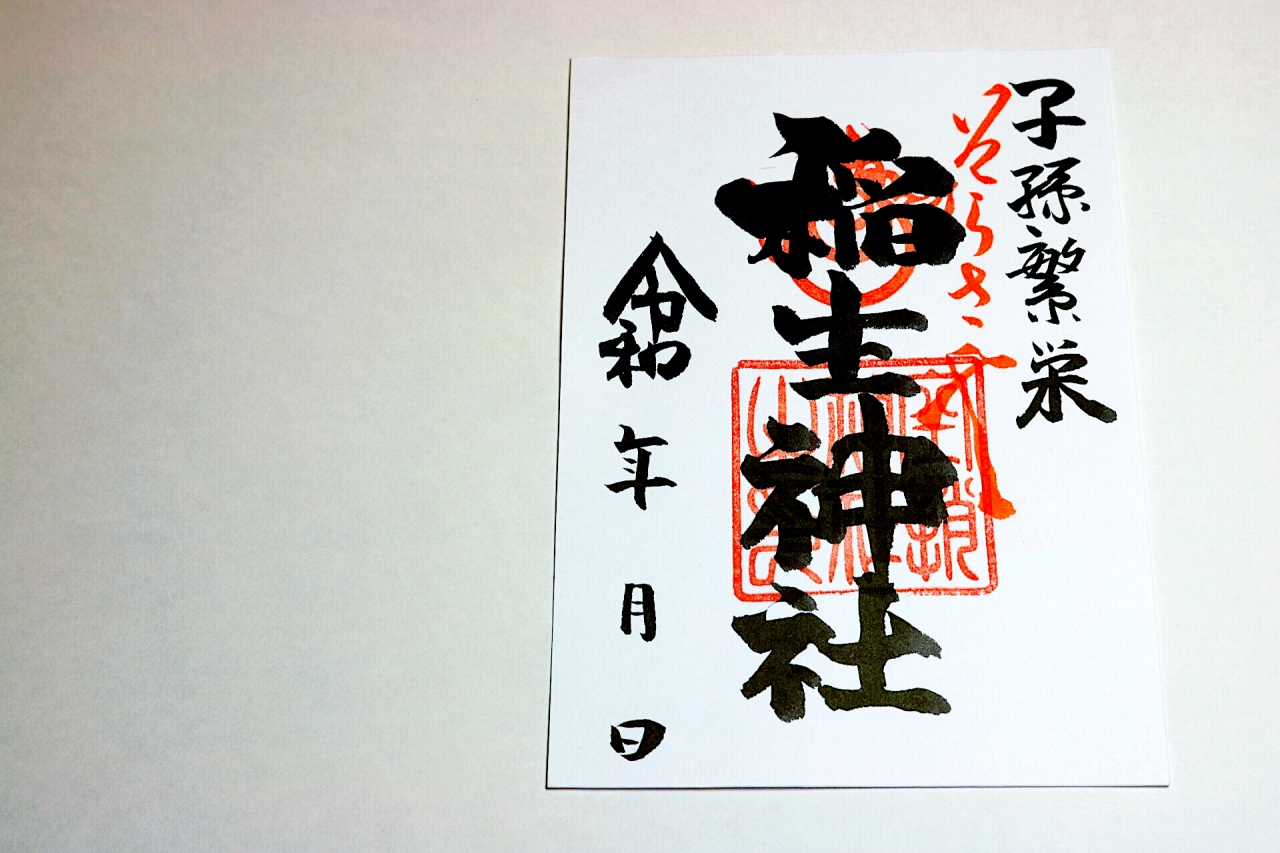 子孫繁栄
そらさやま
稲生神社
令和 年 月 日